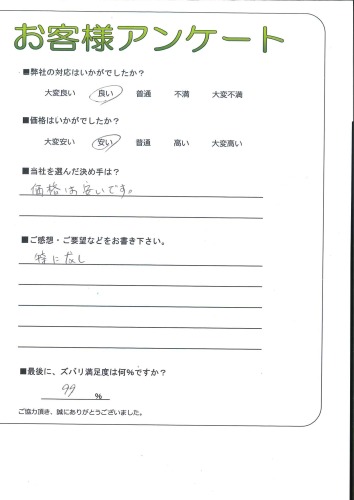 お客様アンケート
■弊社の対応はいかがでしたか?
大変良い 良い 普通 不満 大変不満
■価格はいかがでしたか?
大変安い 安い 普通 高い 大変高い
■当社を選んだ決め手は?
価格は安いです。
■ご感想・ご要望などをお書き下さい。
特になし
■最後に、ズバリ満足度は何%ですか?
99 %
ご協力頂き、誠にありがとうございました。